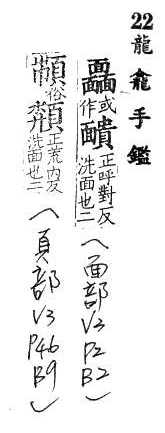 22 龍龕手鑑
或作靧正呼對反洗面也二（面部 V3 P2 B2）
俗 正荒内反洗面也二（頁部 V3 P46 B9）